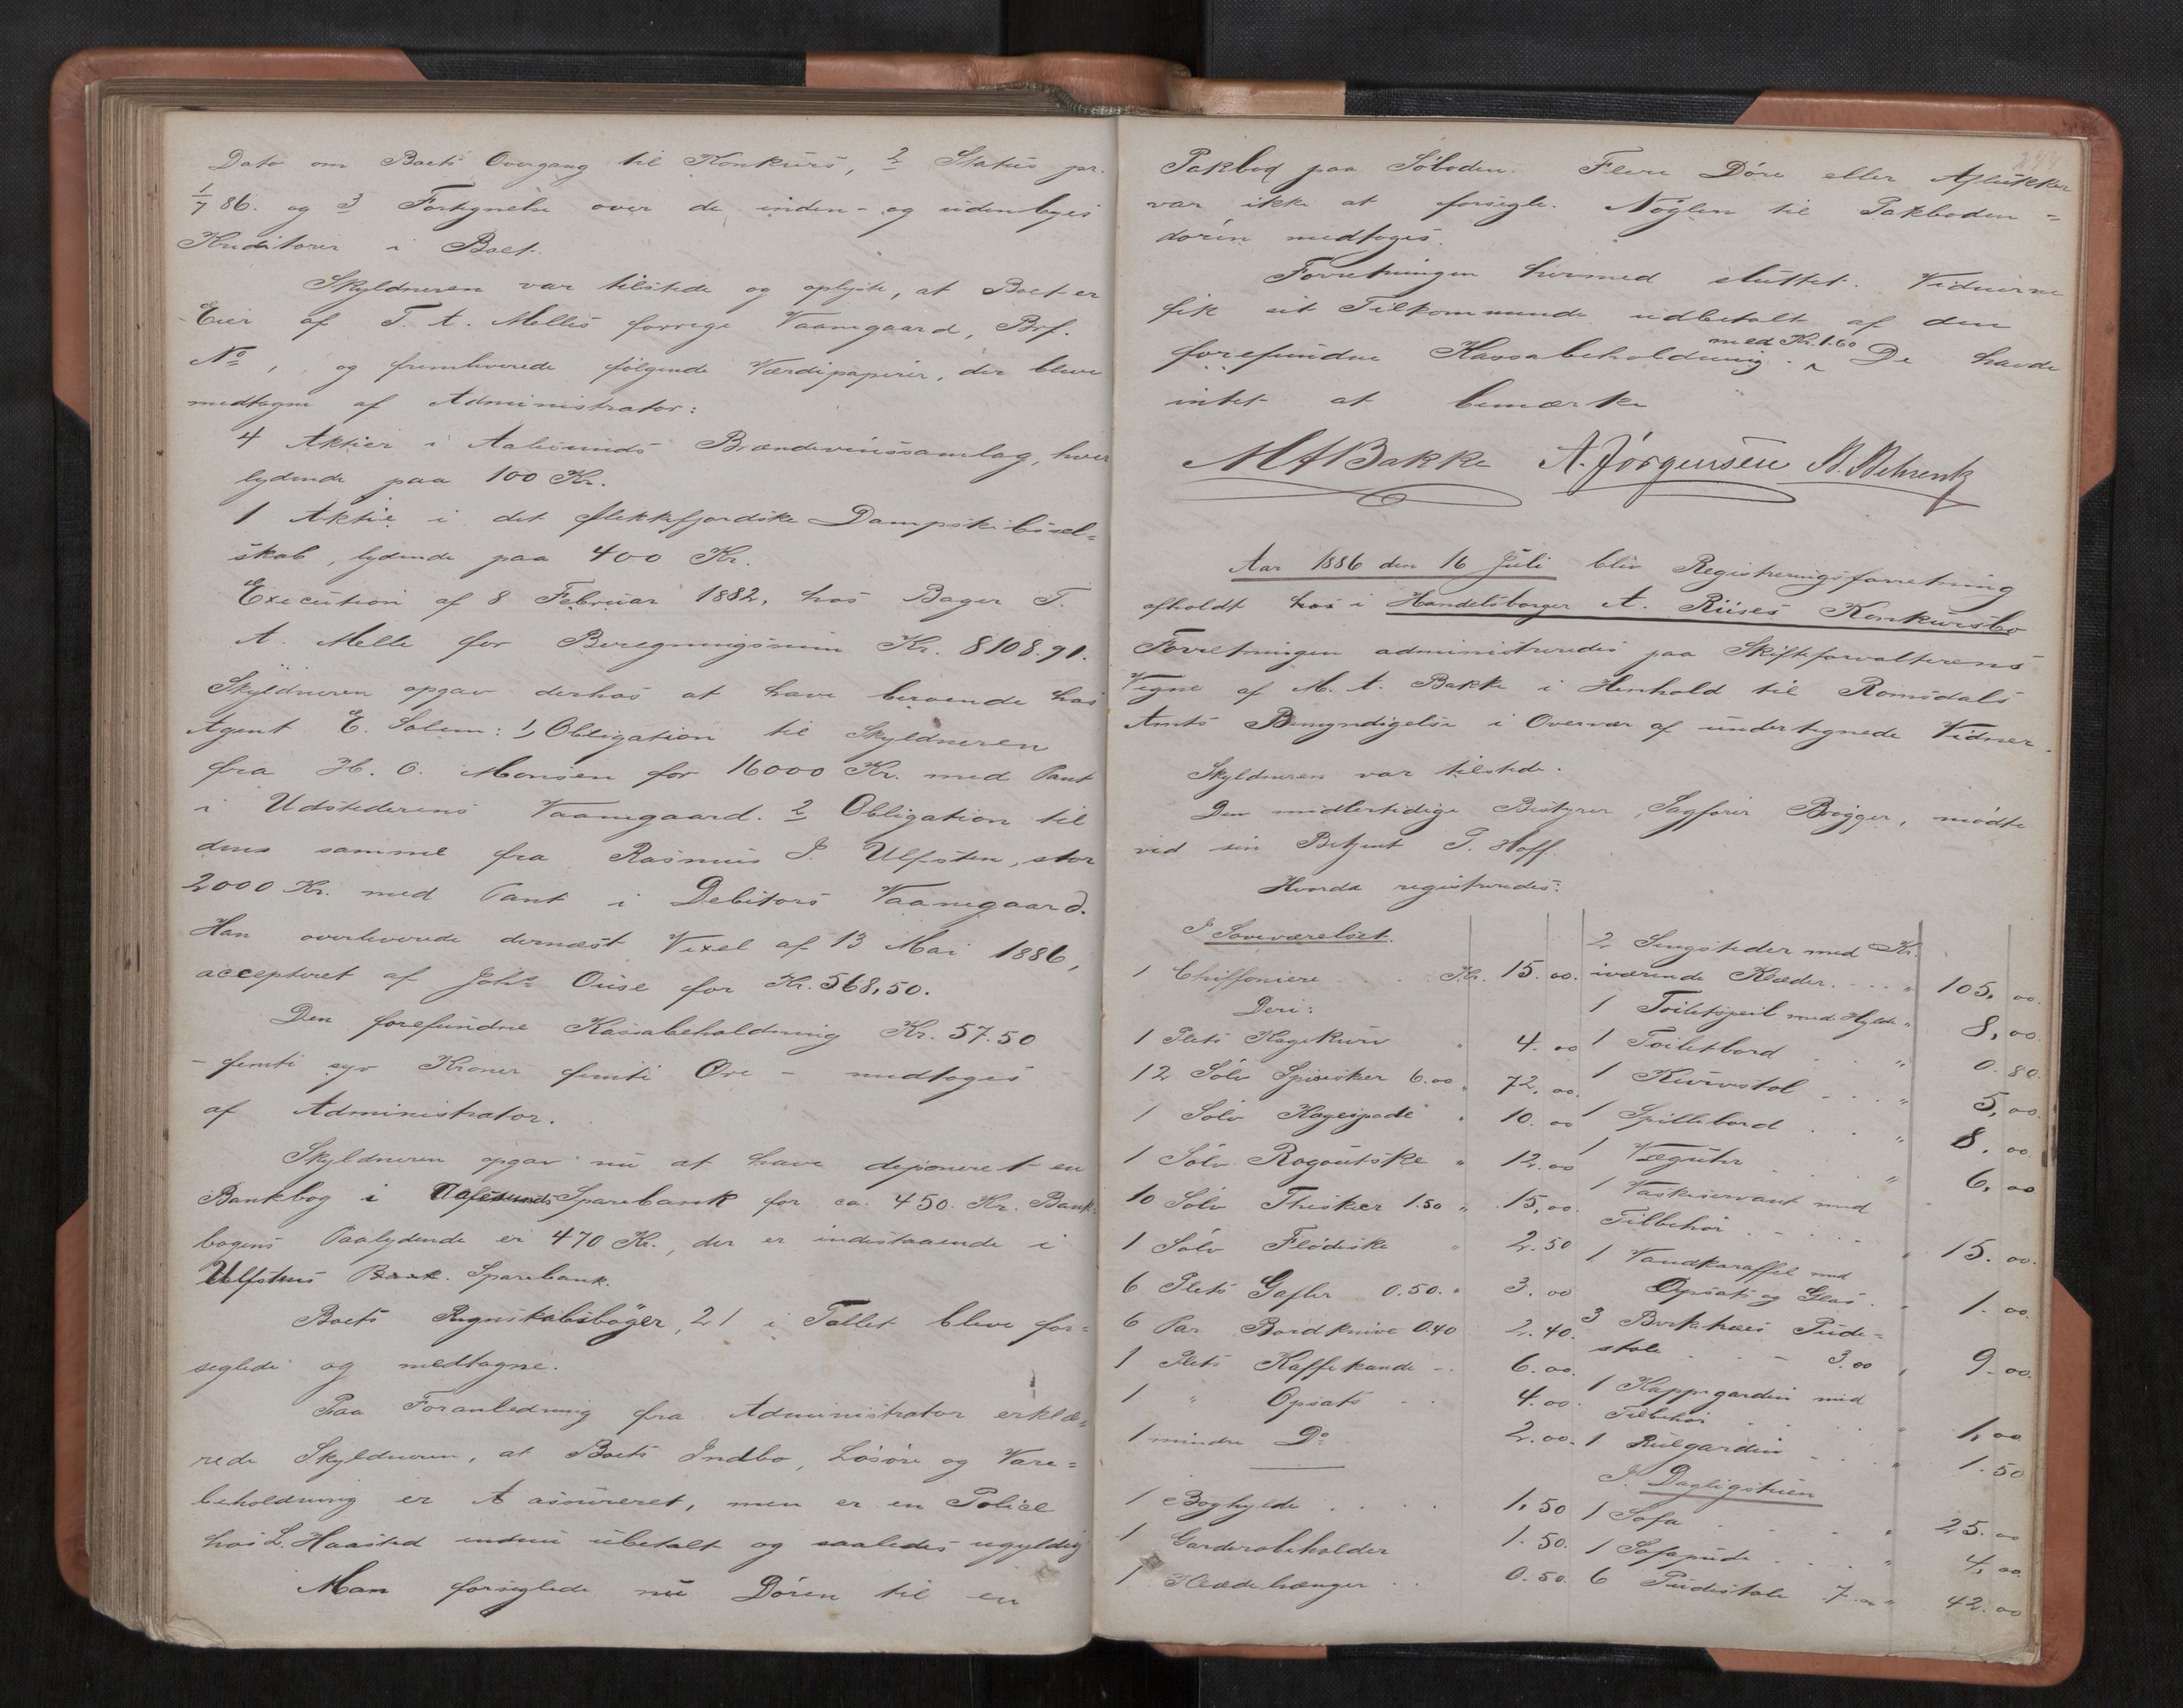 Dato om Boets Overgang til Konkurs, 2 Status pr.
1/7 86. og 3 Fortegnelse over de inden- og udenbyes
Kreditorer i Boet.
Skyldneren var tilstede og oplyste, at Boet er
Eier af T. A. Melles forrige Vaanegaard, Brf.
No , og fremleverede følgende Værdipapirer, der bleve
medtagne af Administrator:
4 Aktier i Aalesunds Brændevinssamlag, hver
lydende paa 100 Kr.
1 Aktie i det flekkefjordske Dampskibssel=
skab, lydende paa 400 Kr.
Execution af 8 Februar 1882, hos Bager T.
A. Melle for Beregningssum Kr. 8108.91.
Skyldneren opgav derhos at have beroende hos
Agent E. Solem: 1, Obligation til Skyldneren
fra H. O. Monsen for 16000 Kr. med Pant
i Udstederens Vaanegaard. 2 Obligation til
dens samme fra Rasmus J. Ulfsten, stor
2000 Kr. med Pant i Debitors Vaanegaard.
Han overleverede dernæst Vexel af 13 Mai 1886,
accepteret af Johs Ouse for Kr. 568,50.
Den forefundne Kassabeholdning Kr. 57.50
- femti syv Kroner femti Øre - medtoges
af Administrator.
Skyldneren opgav nu at have deponeret en
Bankbog i Aalesunds Sparebank for ca. 450 Kr. Bank=
bogens Paalydende er 470 Kr., der er indestaaende i
Ulfstens Bank. Sparebank.
Boets Regnskabsbøger, 21 i Tallet bleve for=
seglede og medtagne.
Paa Foranledning fra Administrator erklæ=
rede Skyldneren, at Boets Indbo, Løsøre og Vare=
beholdning er assureret, men er en Police
hos L. Haasted endnu ubetalt og saaledes ugyldig
Man forseglede nu Døren til en
Pakbod paa Søboden. Flere Døre eller Aflukker
var ikke at forsegle. Nøglen til Pakboden=
døren medtoges.
Forretningen hermed sluttet. Vidnerne
fik sit Tilkommende udbetalt af den
forefundne Kassabeholdning. med Kr. 1.60 De havde
intet at bemærke
M A Bakke A. Jørgensen B. Behrentz
Aar 1886 den 16 Juli blev Registreringsforretning
afholdt hos i Handelsborger A. Riises Konkursbo
Forretningen administreredes paa Skifteforvalterens
Vegne af M. A. Bakke i Henhold til Romsdals
Amts Bemyndigelse i Overvær af undertegnede Vidner.
Skyldneren var tilstede.
Den midlertidige Bestyrer, Sagfører Brøgger, mødte
ved sin Betjent P. Hoff.
Hvorda registreredes:
I Soveværelset.
1 Chiffoniere . . . Kr. 15.00.
Deri:
1 Plets Kagekurv " 4.00
12 Sølv Spiseskeer 6.00 " 72.00.
1 Sølv Kagespade " 10.00
1 Sølv Ragoutske " 12.00
10 Sølv Theskeer 1.50 " 15,00.
1 Sølv Flødeske " 2.50
6 Plets Gafler 0.50. " 3.00
6 Par Bordknive 0.40 2.40.
1 Plets Kaffekande - 6.00.
1 " Opsats - 4.00.
1 mindre Do 2.00.
1 Boghylde . . . . 1,50
1 Garderobeholder 1.50.
1 Klædehænger . . 0.50.
2 Sengsteder med Kr.
iværende Klæder. . . . " 105,00.
1 Toiletspeil med Hylde " 8,00
1 Toiletbord . . " 0.80.
1 Kurvstol . . . " 5,00.
1 Spillebord . . " 8.00
1 Væguhr . . " 6,00
1 Vaskeservant med
Tilbehør . . . . " 15.00.
1 Vandkaraffel med
Opsats og Glas. " 1.00.
3 Birketræes Pude=
stole - 3.00 " 9-00.
1 Kappegardin med
Tilbehør . . " 1,00
1 Rulgardin . . . " 1.50
I Dagligstuen
1 Sofa . . . " 25.00
1 Sofapude . . . " 4,00.
6 Pudestole 7 " " 42.00